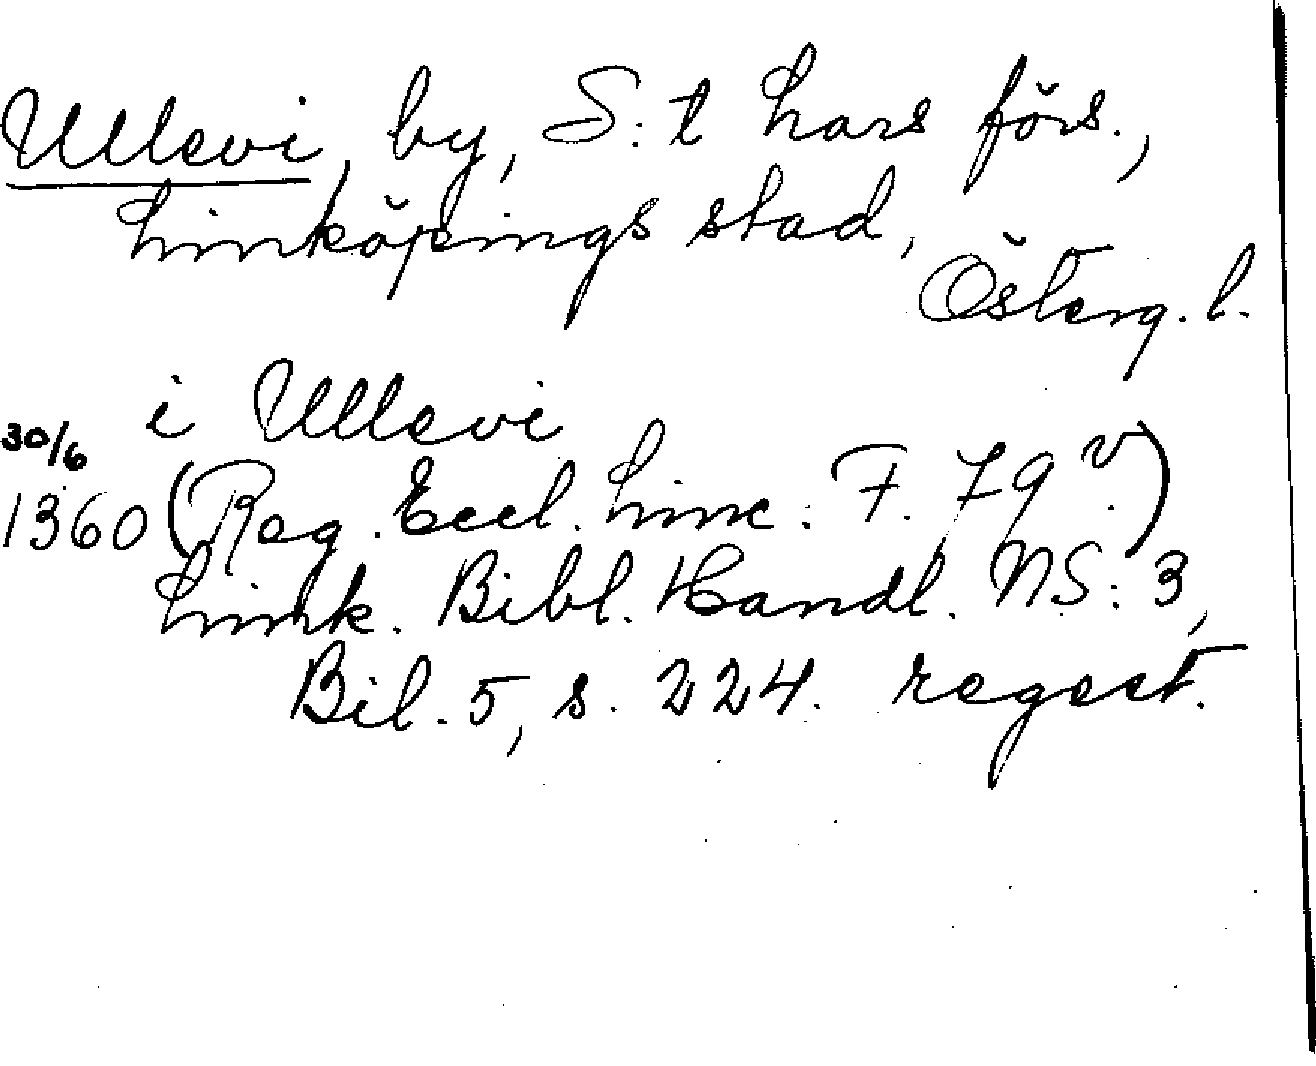 Ullevi, by, S:t Lars förs.,
Linköpings stad,
Österg. l.
i Ullevi
30/6
1360 (Reg. Eccl. Linc. F. 79 v.)
Link. Bibl. Handl. NS: 3,
Bil. 5, s. 224. regest.